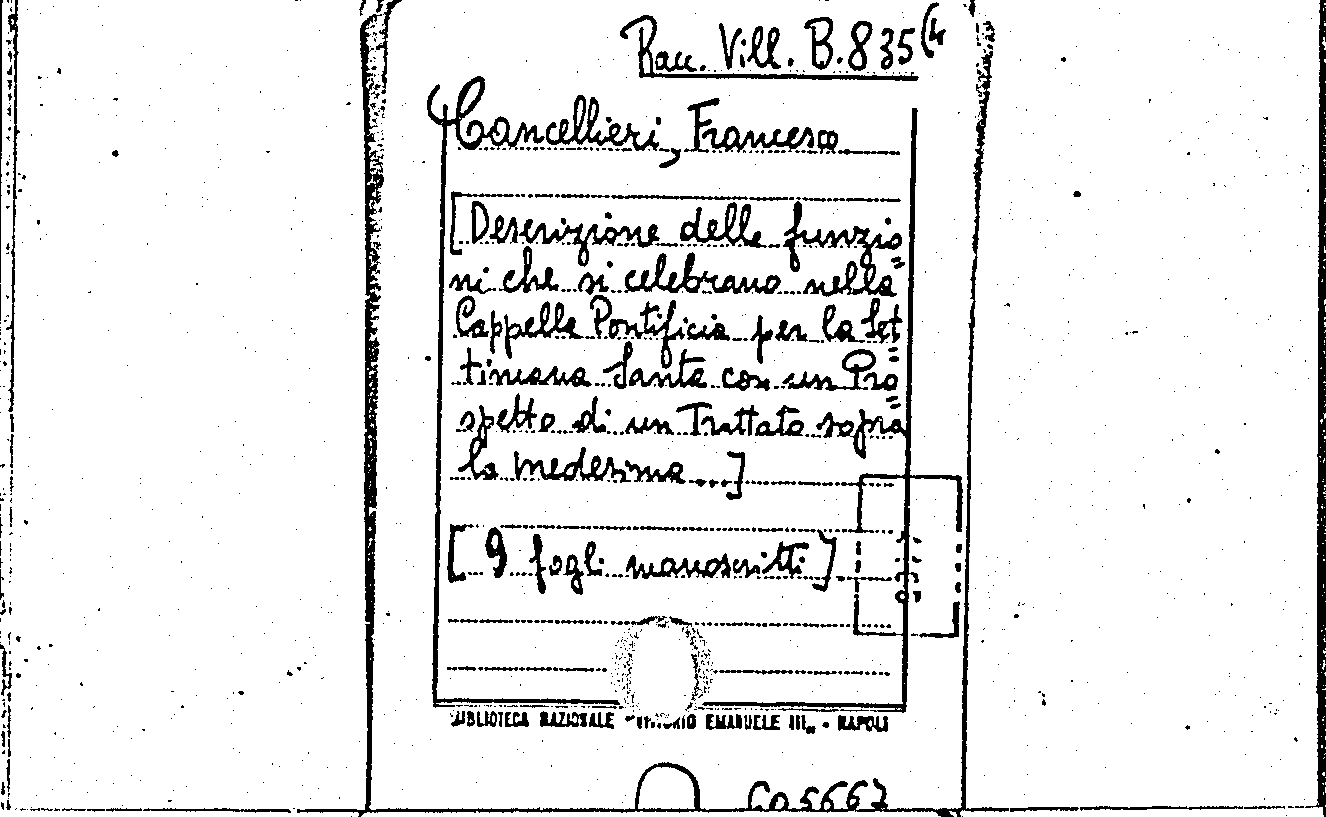 Racc. Vill. B.835(4
Cancellieri, Francesco
[Descrizione delle funzio
ni che si celebrano nella
Cappella Pontificia per la Set
timana Santa con un Pro
spetto di un Trattato sopra
la medesima...]
[9 fogli manoscritti]
BIBLIOTECA NAZIONALE "VITTORIO EMANUELE III„ - NAPOLI